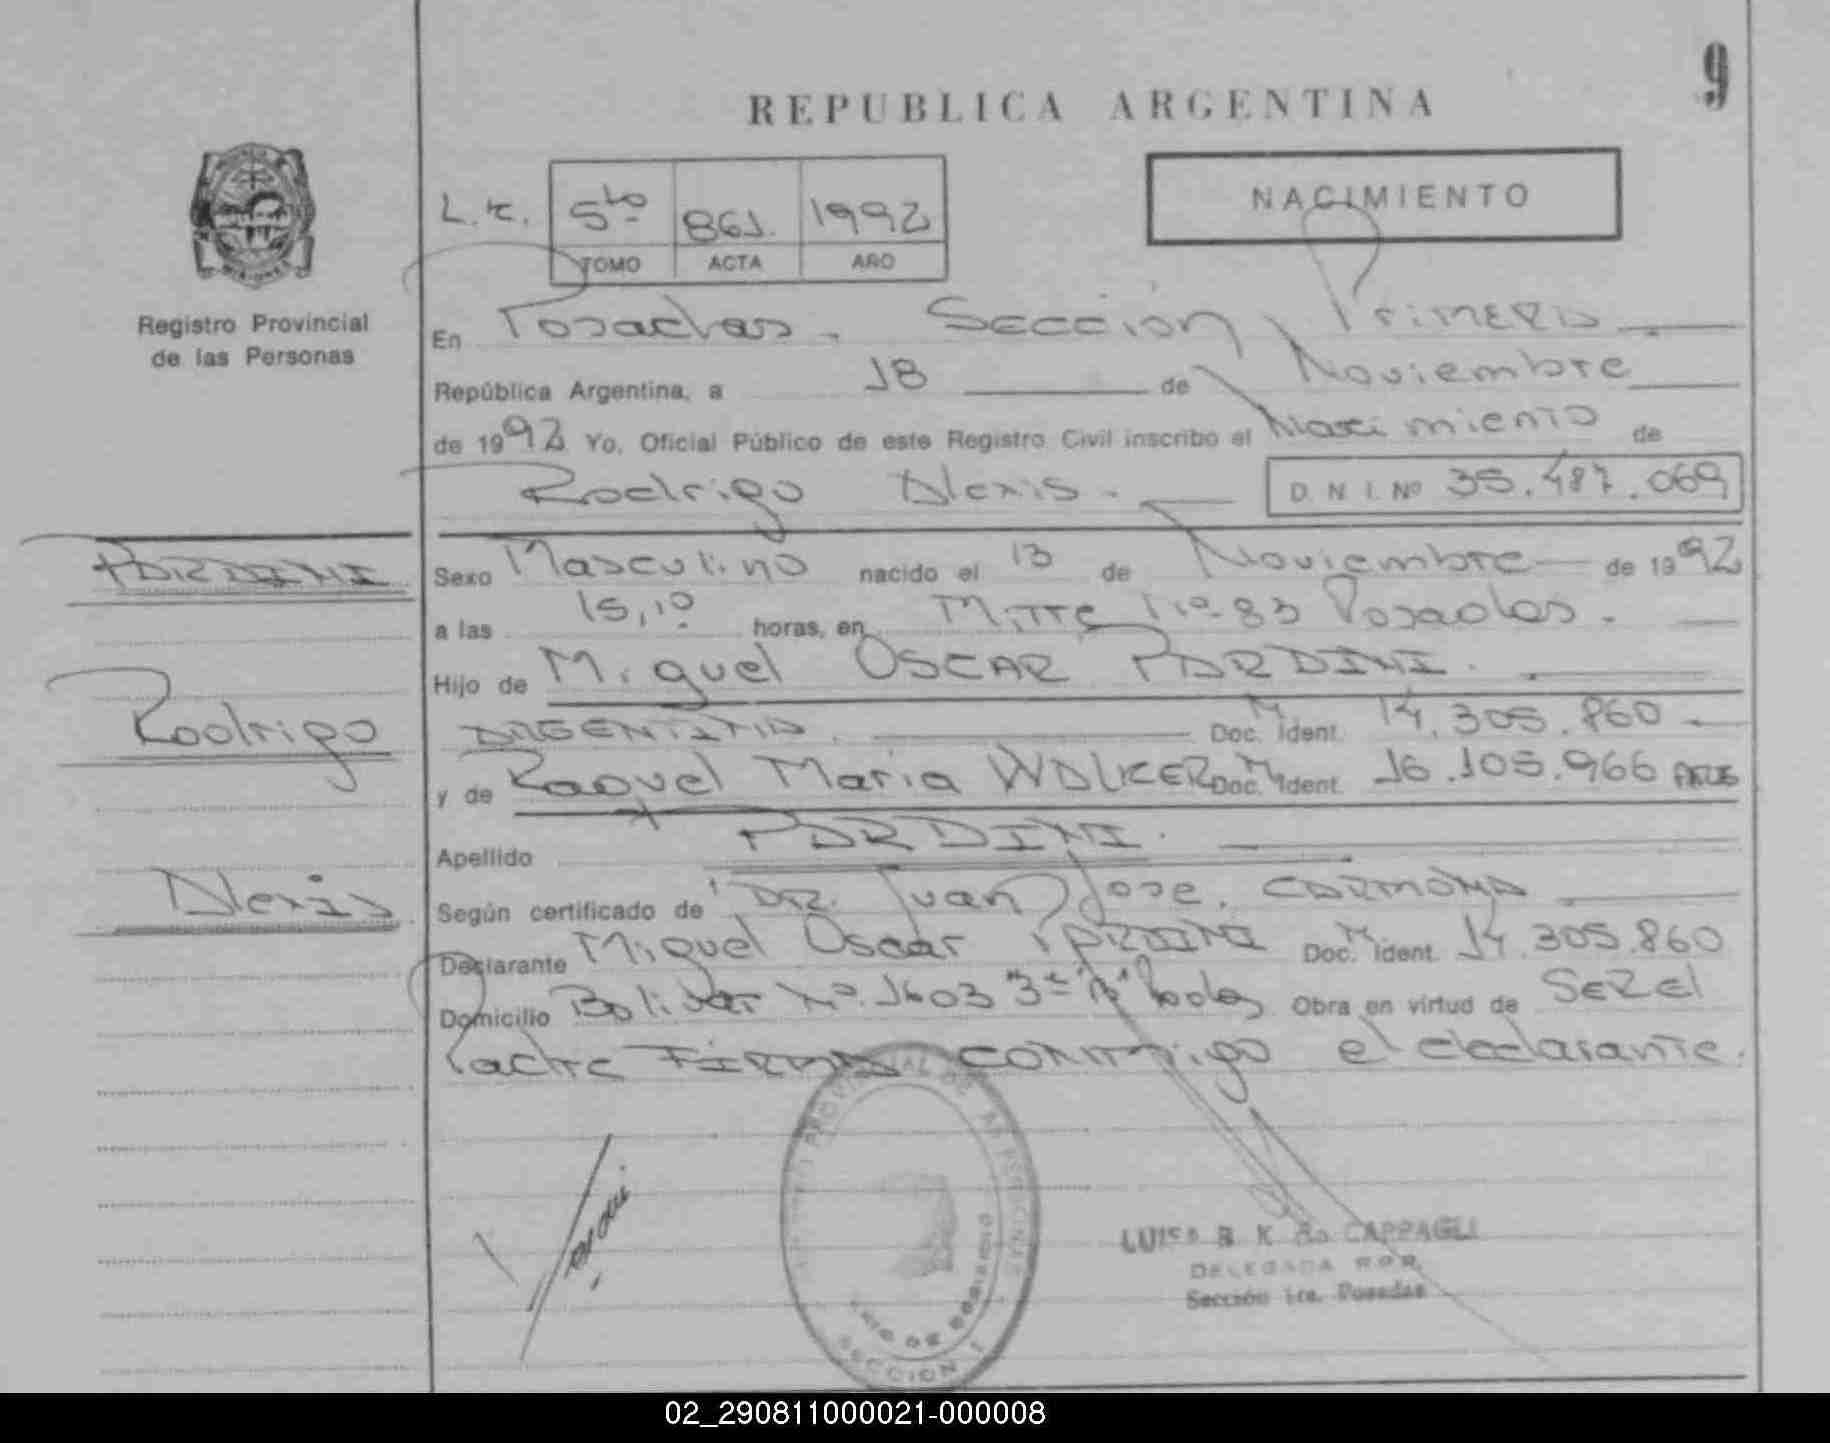 9
REPUBLICA ARGENTINA
NACIMIENTO
5to 861. 1992
TOMO ACTA AÑO
Registro Provincial
de las Personas
En Posadas. Sección Primera
República Argentina, a 18 de Noviembre
de 1992 Yo, Oficial Público de este Registro Civil inscribo el Nacimiento de
Rodrigo Alexis. D.N.I. Nº 35.487.069
PARDINI
Rodrigo
Alexis
Sexo Masculino nacido el 13 de Noviembre de 1992
a las 15,10 horas, en Mitre Nº 83 Posadas.
Hijo de Miguel OSCAR PARDINI.
ARGENTINA. Doc. M. Ident. 14.305.860
y de Raquel Maria WALKER Doc. M. Ident. 16.105.966
Apellido PARDINI.
Según certificado de Dr. Juan Jose. CARMONA
Declarante Miguel Oscar PARDINI Doc. M. Ident. 14.305.860
Domicilio Bolivar Nº. 1603 3º Obra en virtud de SER El
Padre FIRMA conmigo el declarante.
CAPPAGLI
DELEGADA R.P.P.
Sección 1ra. Posadas
SECCION 1
02_290811000021-000008